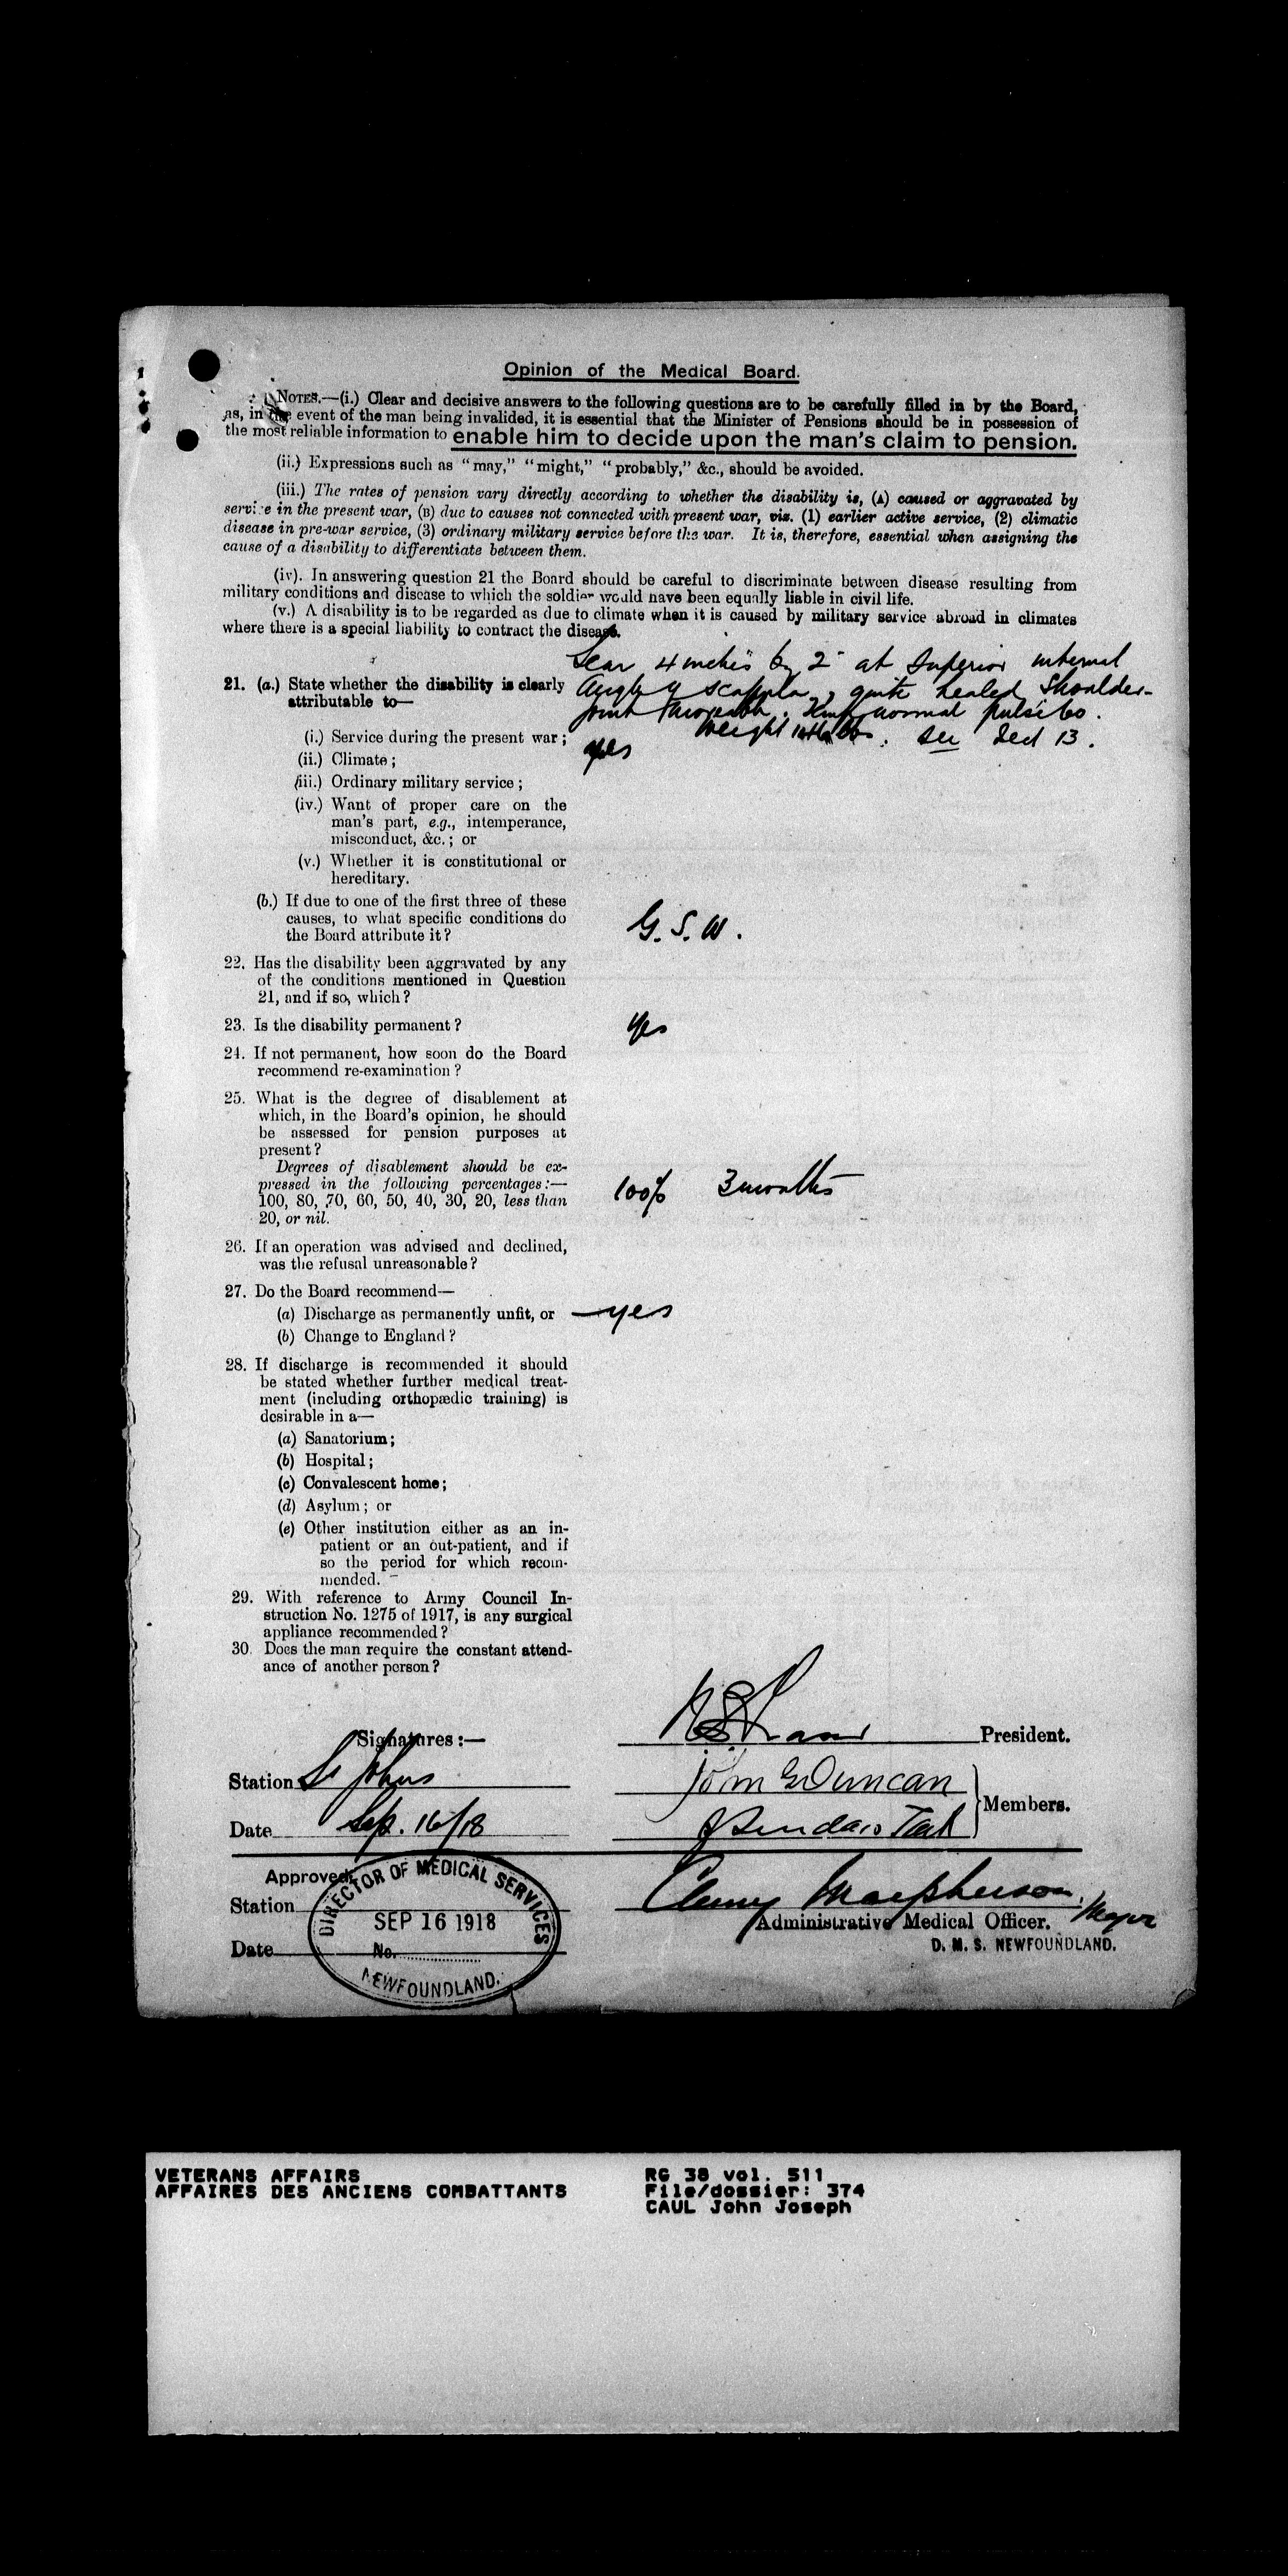 Opinion of the Medical Board.
NOTES.—(i.) Clear and decisive answers to the following questions are to be carefully filled in by the Board,
as, in the event of the man being invalided, it is essential that the Minister of Pensions should be in possession of
the most reliable information to enable him to decide upon the man's claim to pension.
(ii.) Expressions such as "may," "might," "probably," &c., should be avoided.
(iii.) The rates of pension vary directly according to whether the disability is, (A) caused or aggravated by
service in the present war, (B) due to causes not connected with present war, viz. (1) earlier active service, (2) climatic
disease in pre-war service, (3) ordinary military service before the war. It is, therefore, essential when assigning the
cause of a disability to differentiate between them.
(iv). In answering question 21 the Board should be careful to discriminate between disease resulting from
military conditions and disease to which the soldier would have been equally liable in civil life.
(v.) A disability is to be regarded as due to climate when it is caused by military service abroad in climates
where there is a special liability to contract the disease.
Scar 4 inches by 2" at Superior internal
21. (a.) State whether the disability is clearly angle of scapula, quite healed Shoulder-
attributable to— joint normal pulse 60.
(i.) Service during the present war; yes Weight See Sect 13.
(ii.) Climate;
(iii.) Ordinary military service;
(iv.) Want of proper care on the
man's part, e.g., intemperance,
misconduct, &c.; or
(v.) Whether it is constitutional or
hereditary.
(b.) If due to one of the first three of these
causes, to what specific conditions do G. S. W.
the Board attribute it?
22. Has the disability been aggravated by any
of the conditions mentioned in Question
21, and if so, which?
23. Is the disability permanent? yes
24. If not permanent, how soon do the Board
recommend re-examination?
25. What is the degree of disablement at
which, in the Board's opinion, he should
be assessed for pension purposes at
present?
Degrees of disablement should be ex-
pressed in the following percentages:— 100% 3 months
100, 80, 70, 60, 50, 40, 30, 20, less than
20, or nil.
26. If an operation was advised and declined,
was the refusal unreasonable?
27. Do the Board recommend—
(a) Discharge as permanently unfit, or —yes
(b) Change to England?
28. If discharge is recommended it should
be stated whether further medical treat-
ment (including orthopædic training) is
desirable in a—
(a) Sanatorium;
(b) Hospital;
(c) Convalescent home;
(d) Asylum; or
(e) Other institution either as an in-
patient or an out-patient, and if
so the period for which recom-
mended.
29. With reference to Army Council In-
struction No. 1275 of 1917, is any surgical
appliance recommended?
30. Does the man require the constant attend-
ance of another person?
Signatures:— President.
Station St Johns John G Duncan
Members.
Date Sep. 16/18
Approved:
Station Cluny Macpherson, Major
Administrative Medical Officer.
Date D. M. S. NEWFOUNDLAND.
DIRECTOR OF MEDICAL SERVICES
SEP 16 1918
No.
NEWFOUNDLAND.
VETERANS AFFAIRS RG 38 vol. 511
AFFAIRES DES ANCIENS COMBATTANTS File/dossier: 374
CAUL John Joseph